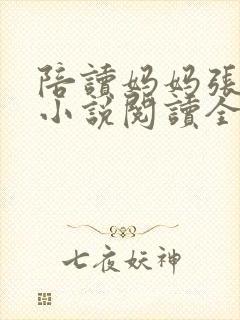 陪讀妈妈張
小說閱讀全
七夜妖神